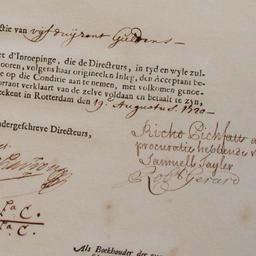 ctie van vijf duyzent Guldens
et d'Inroepinge, die de Directeurs, in tyd en wyle zul-
ooren, volgens haar origineelen Inleg, den Acceptant be-
e op die Conditie aan te nemen, met volkomen genoe-
ortant verklaart van de zelve voldaan en betaalt te zyn,
eekent in Rotterdam den 19 Augustus 1720
ndergeschreve Directeurs,
Richd
procuratie hebbende v
Samuell Sayler
Robt Gerard
C.
C.
Als Boekhouder der